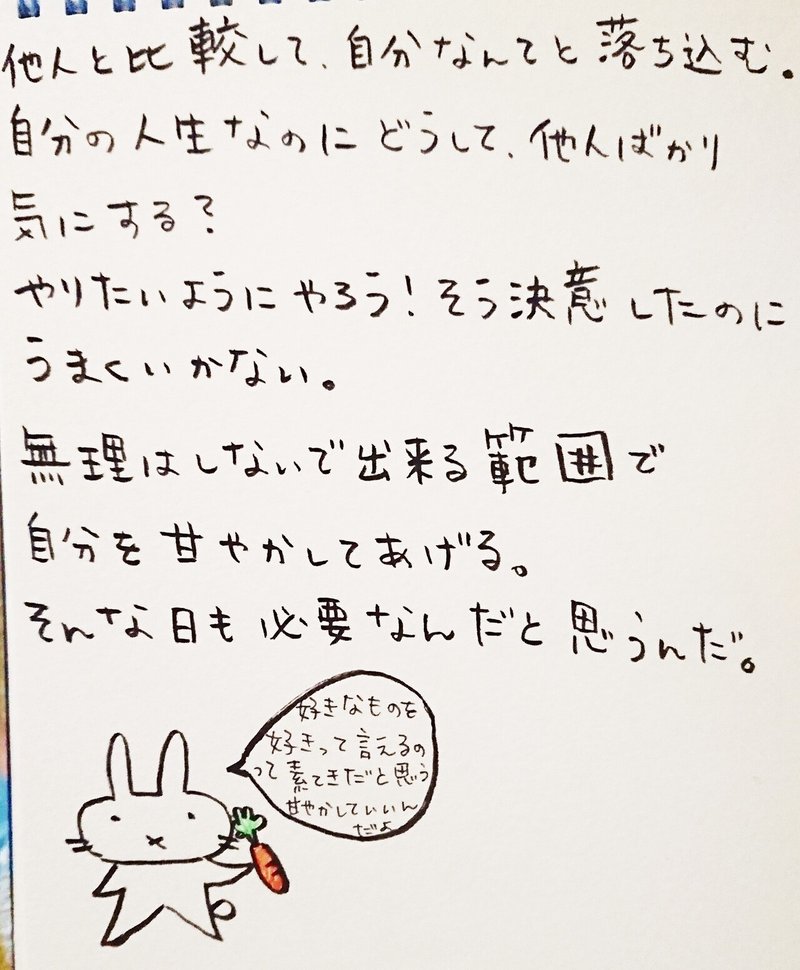 他人と比較して、自分なんてと落ち込む。
自分の人生なのにどうして、他人ばかり
気にする？
やりたいようにやろう！そう決意したのに
うまくいかない。
無理はしないで出来る範囲で
自分を甘やかしてあげる。
そんな日も必要なんだと思うんだ。
好きなものを
好きって言えるの
って素てきだと思う
甘やかしていいん
だよ